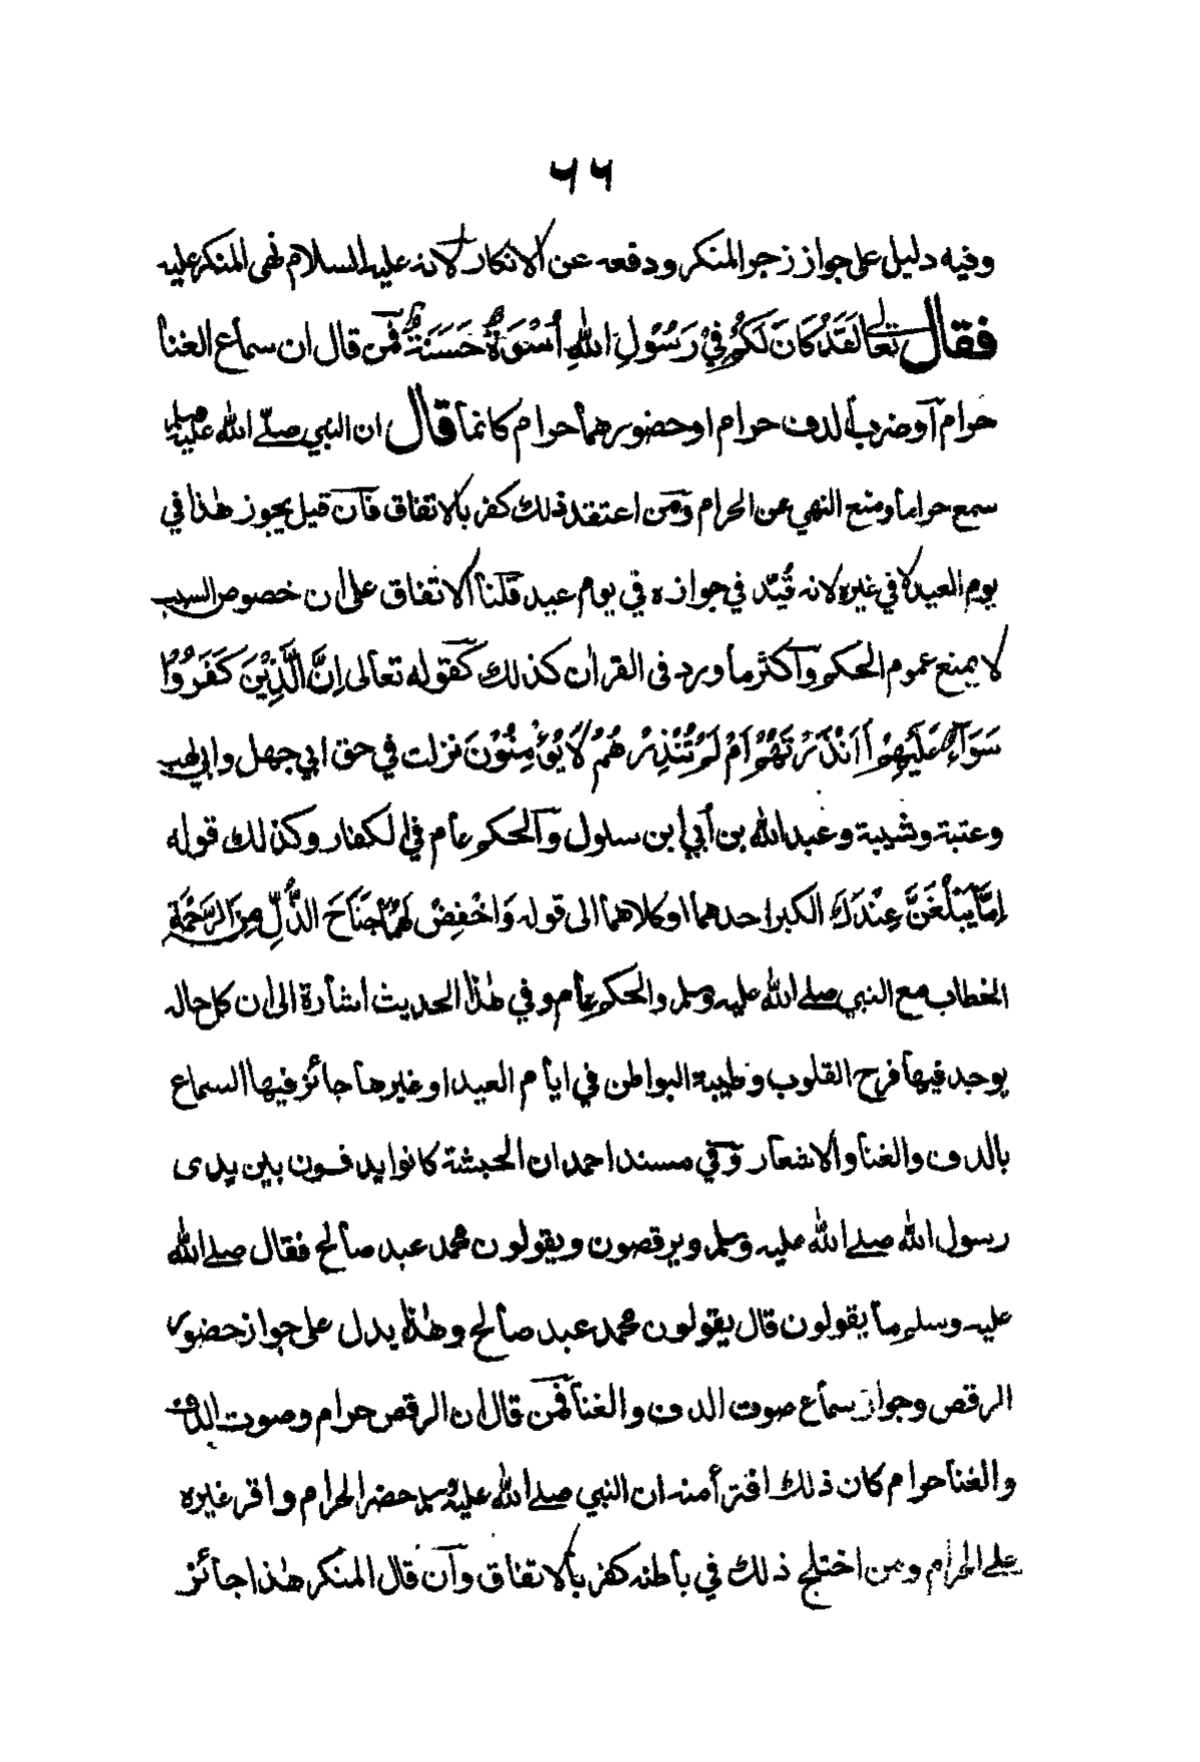 ٦٦
وفيه دليل على جواز زجر المنكر ودفعه عن الانكار لانه عليه السلام نهى المنكر عليه
فقال تعالى لَقَدْ كَانَ لَكُمْ فِيْ رَسُوْلِ اللهِ أُسْوَةٌ حَسَنَةٌ فمن قال ان سماع الغنا
حرام او ضرب الدف حرام او حضورهما حرام كانما قال ان النبي صلى الله عليه وسلم
سمع حراما ومنع النهي عن الحرام ومن اعتقد ذلك كفر بالاتفاق فان قيل يجوز هذا في
يوم العيد لا في غيره لانه قُيّد في جوازه في يوم عيد قلنا الاتفاق على ان خصوص السبب
لا يمنع عموم الحكم واكثر ما ورد فى القران كذلك كقوله تعالى اِنَّ الَّذِيْنَ كَفَرُوْا
سَوَآءٌ عَلَيْهِمْ أَاَنْذَرْتَهُمْ اَمْ لَمْ تُنْذِرْهُمْ لَا يُؤْمِنُوْنَ نزلت في حق ابي جهل وابي لهب
وعتبة وشيبة وعبد الله بن أبي ابن سلول والحكم عام في الكفار وكذلك قوله
اِمَّا يَبْلُغَنَّ عِنْدَكَ الكبر احدهما او كلاهما الى قوله وَاخْفِضْ لَهُمَا جَنَاحَ الذُّلِّ مِنَ الرَّحْمَةِ
الخطاب مع النبي صلى الله عليه وسلم والحكم عام وفي هذا الحديث اشارة الى ان كل حاله
يوجد فيها فرح القلوب وطيبة البواطن في ايام العيد او غيرها جائز فيها السماع
بالدف والغنا والاشعار وفي مسند احمد ان الحبشة كانوا يدفون بين يدى
رسول الله صلى الله عليه وسلم ويرقصون ويقولون محمد عبد صالح فقال صلى الله
عليه وسلم ما يقولون قال يقولون محمد عبد صالح وهذا يدل على جواز حضور
الرقص وجواز سماع صوت الدف والغنا فمن قال ان الرقص حرام وصوت الدف
والغنا حرام كان ذلك افترأ منه ان النبي صلى الله عليه وسلم حضر الحرام واقر غيره
على الحرام ومن اختلج ذلك في باطنه كفر بالاتفاق وان قال المنكر هذا جائز